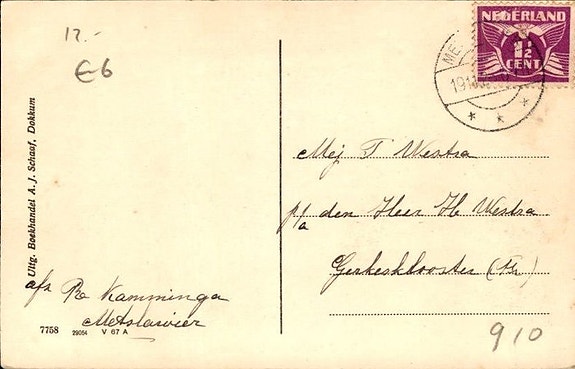 12.-
€6
NEDERLAND
1½
CENT
ME
Mej T Westra
p/a den Heer H Westra
Gerkesklooster (Fr)
Uitg. Boekhandel A. J. Schaaf, Dokkum
afz Kamminga
Metslawier
7758 29054 V 67 A
910